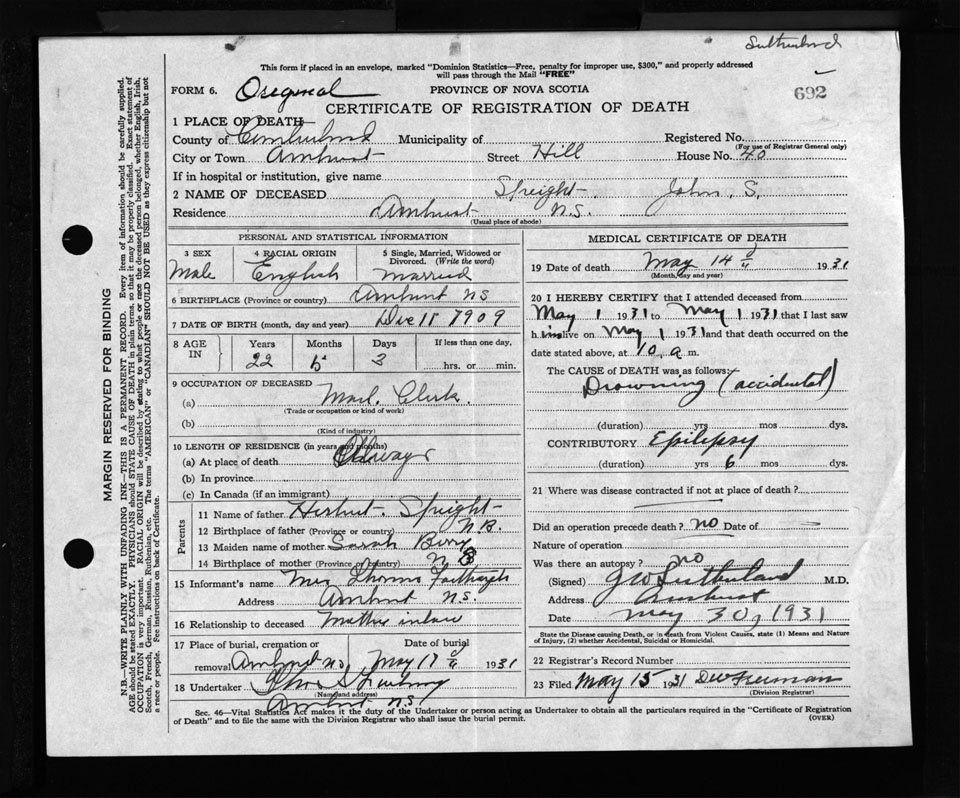 Sutherland
This form if placed in an envelope, marked "Dominion Statistics—Free, penalty for improper use, $300," and properly addressed
will pass through the Mail "FREE"
692
FORM 6. Original PROVINCE OF NOVA SCOTIA
CERTIFICATE OF REGISTRATION OF DEATH
1 PLACE OF DEATH
County of Cumberland Municipality of Registered No.
(For use of Registrar General only)
City or Town Amherst Street Hill House No. 40
If in hospital or institution, give name
2 NAME OF DECEASED Speight John. S.
Residence Amherst N.S.
(Usual place of abode)
PERSONAL AND STATISTICAL INFORMATION
3 SEX 4 RACIAL ORIGIN 5 Single, Married, Widowed or
Divorced. (Write the word)
Male English married
6 BIRTHPLACE (Province or country) Amherst NS
7 DATE OF BIRTH (month, day and year) Dec 11 1909
8 AGE IN Years Months Days If less than one day,
22 5 3 hrs. or min.
9 OCCUPATION OF DECEASED
(a) Mail Clerk.
(Trade or occupation or kind of work)
(b)
(Kind of industry)
10 LENGTH OF RESIDENCE (in years and months)
(a) At place of death Always
(b) In province
(c) In Canada (if an immigrant)
Parents
11 Name of father Herbert Speight
12 Birthplace of father (Province or country) N.B.
13 Maiden name of mother Sarah Berry
14 Birthplace of mother (Province or country) N B
15 Informant's name Mrs Thomas
Address Amherst N.S.
16 Relationship to deceased Mother inlaw
17 Place of burial, cremation or Date of burial
removal Amherst NS May 17 1931
18 Undertaker
(Name and address)
Amherst N.S.
MEDICAL CERTIFICATE OF DEATH
19 Date of death May 14 1931
(Month, day and year)
20 I HEREBY CERTIFY that I attended deceased from
May 1 1931 to May 1 1931 that I last saw
him alive on May 1 1931 and that death occurred on the
date stated above, at 10 a m.
The CAUSE of DEATH was as follows:
Drowning (accidental)
(duration) yrs mos dys.
CONTRIBUTORY Epilepsy
(duration) yrs 6 mos dys.
21 Where was disease contracted if not at place of death?
Did an operation precede death? no Date of
Nature of operation
Was there an autopsy? no
(Signed) GW Sutherland M.D.
Address Amherst
Date May 30, 1931
State the Disease causing Death, or in death from Violent Causes, state (1) Means and Nature
of Injury, (2) whether Accidental, Suicidal or Homicidal.
22 Registrar's Record Number
23 Filed May 15 1931 Freeman
(Division Registrar)
Sec. 46—Vital Statistics Act makes it the duty of the Undertaker or person acting as Undertaker to obtain all the particulars required in the "Certificate of Registration
of Death" and to file the same with the Division Registrar who shall issue the burial permit. (OVER)
MARGIN RESERVED FOR BINDING
N.B.—WRITE PLAINLY WITH UNFADING INK—THIS IS A PERMANENT RECORD. Every item of information should be carefully supplied.
AGE should be stated EXACTLY. PHYSICIANS should STATE CAUSE OF DEATH in plain terms, so that it may be properly classified. Exact statement of
OCCUPATION is very important. RACIAL ORIGIN will be described by stating to what people or race the deceased person belonged, whether English, Irish,
Scotch, French, German, Russian, Ruthenian, etc. The terms "AMERICAN" or "CANADIAN" SHOULD NOT BE USED as they express citizenship but not
a race or people. See instructions on back of Certificate.